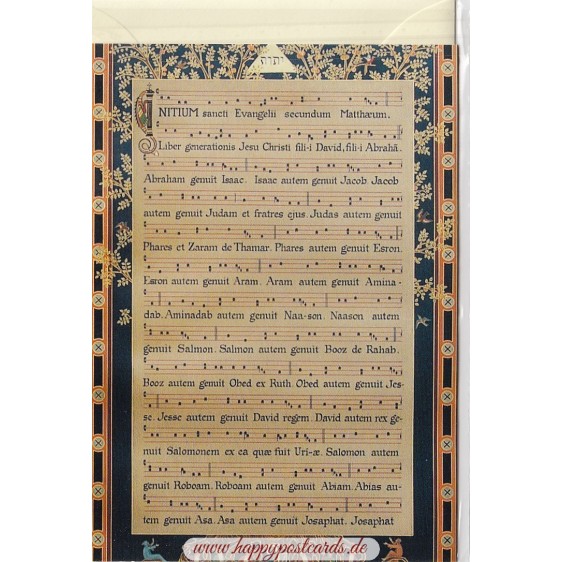 יהוה
INITIUM sancti Evangelii secundum Matthæum.
Liber generationis Jesu Christi fili-i David, fili-i Abrahã
Abraham genuit Isaac. Isaac autem genuit Jacob Jacob
autem genuit Judam et fratres ejus. Judas autem genuit
Phares et Zaram de Thamar. Phares autem genuit Esron.
Esron autem genuit Aram. Aram autem genuit Amina-
dab. Aminadab autem genuit Naa-son. Naason autem
genuit Salmon. Salmon autem genuit Booz de Rahab.
Booz autem genuit Obed ex Ruth. Obed autem genuit Jes-
se. Jesse autem genuit David regem. David autem rex ge-
nuit Salomonem ex ea quæ fuit Uri-æ. Salomon autem
genuit Roboam. Roboam autem genuit Abiam. Abias au-
tem genuit Asa. Asa autem genuit Josaphat. Josaphat
www.happypostcards.de